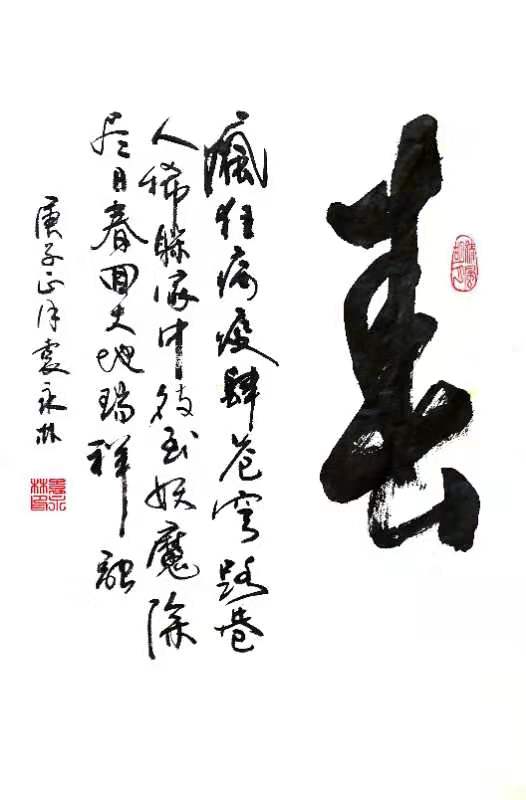 春
瘋狂病疫肆苍穹路巷
人稀躲家中待到妖魔除
尽日春回大地瑞祥融
庚子正月袁永林